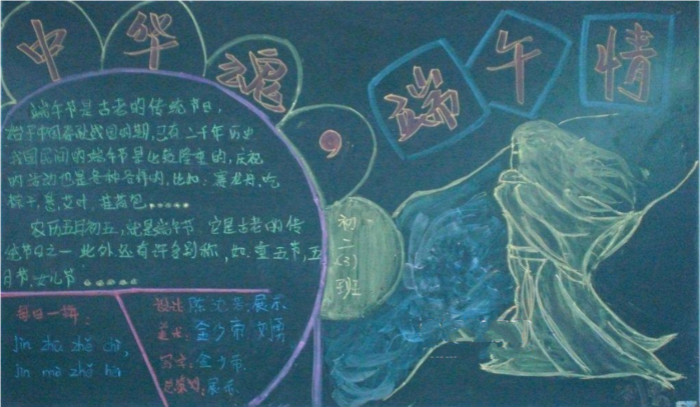 中华魂，
端午情
端午节是古老的传统节日，
始于中国春秋战国时期，已有二千年历史
我国民间的端午节是比较隆重的，庆祝
的活动也是各种各样的，比如：赛龙舟，吃
粽子，悬艾叶，挂荷包……
农历五月初五，就是端午节，它是古老的传
统节日之一 此外还有许多别称，如：重五节，五
月节，女儿节……
初二(3)班
每日一拼：
jìn zhū zhě chì，
jìn mò zhě hēi
设计：陈 展示
美术：金少南 刘
写字：金少南
总策划：展示